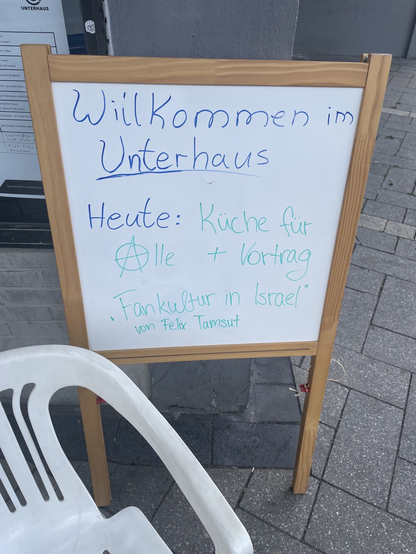 UNTERHAUS
Willkommen im
Unterhaus
Heute: Küche für
Alle + Vortrag
„Fankultur in Israel"
von Felix Tamsut